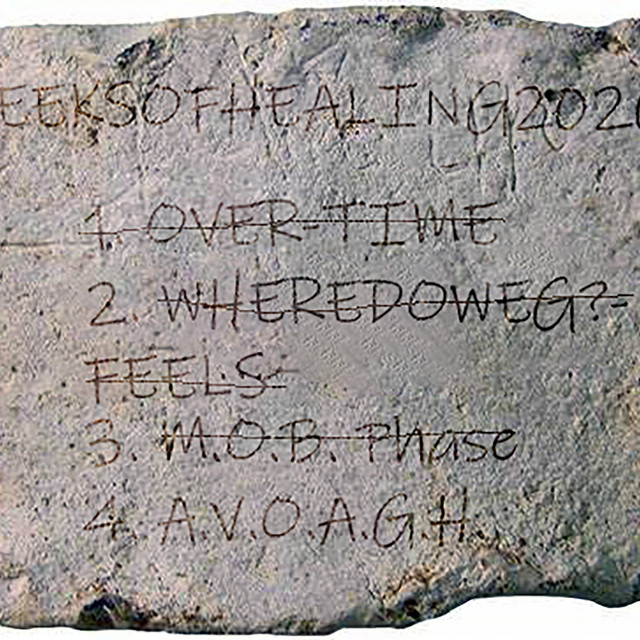 EEKSOFHEALING202
1. OVER-TIME
2. WHEREDOWEG?-
FEELS
3. M.O.B. Phase
4. A.V.O.A.G.H.